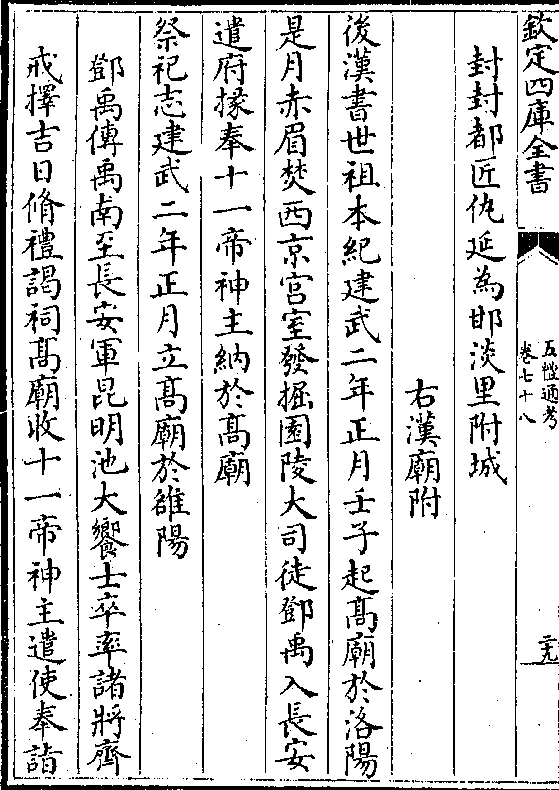 欽定四庫全書
五禮通考
卷七十八
二九
封封都匠仇延為邯淡里附城
右漢廟附
後漢書世祖本紀建武二年正月壬子起髙廟於洛陽
是月赤眉焚西京宫室發掘園陵大司徒鄧禹入長安
遣府掾奉十一帝神主納於髙廟
祭祀志建武二年正月立髙廟於雒陽
鄧禹傳禹南至長安軍昆明池大饗士卒率諸將齊
戒擇吉日脩禮謁祠髙廟收十一帝神主遣使奉詣